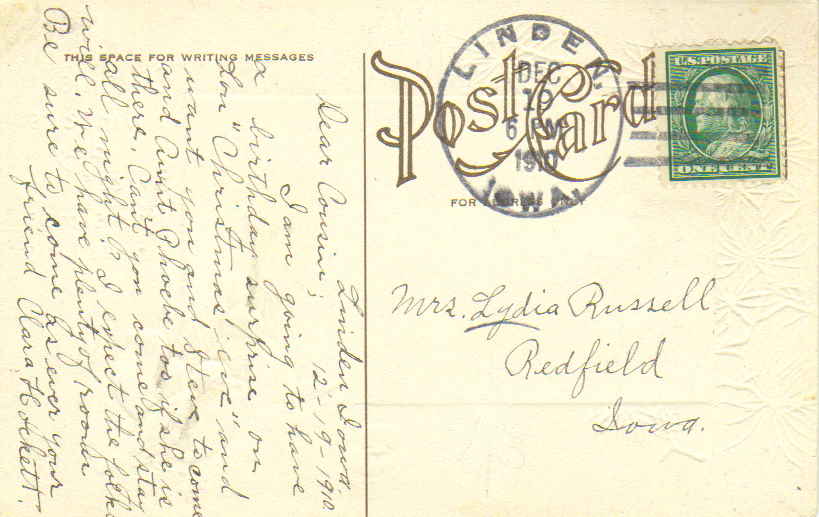 THIS SPACE FOR WRITING MESSAGES
Post Card
FOR ADDRESS ONLY
LINDEN.
DEC
19
6 PM
1910
IOWA.
U.S. POSTAGE
ONE CENT
Linden Iowa.
12-19-1910.
Dear Cousin;
I am going to have
a birthday surprise on
Lon "Christmas eve" and
want you and Steve to come
and Aunt Phoebe too if she is
there. Can't you come and stay
all night? I expect the folks
will. We have plenty of room
Be sure to come as ever your
friend Clara Hockett.
Mrs. Lydia Russell
Redfield
Iowa.